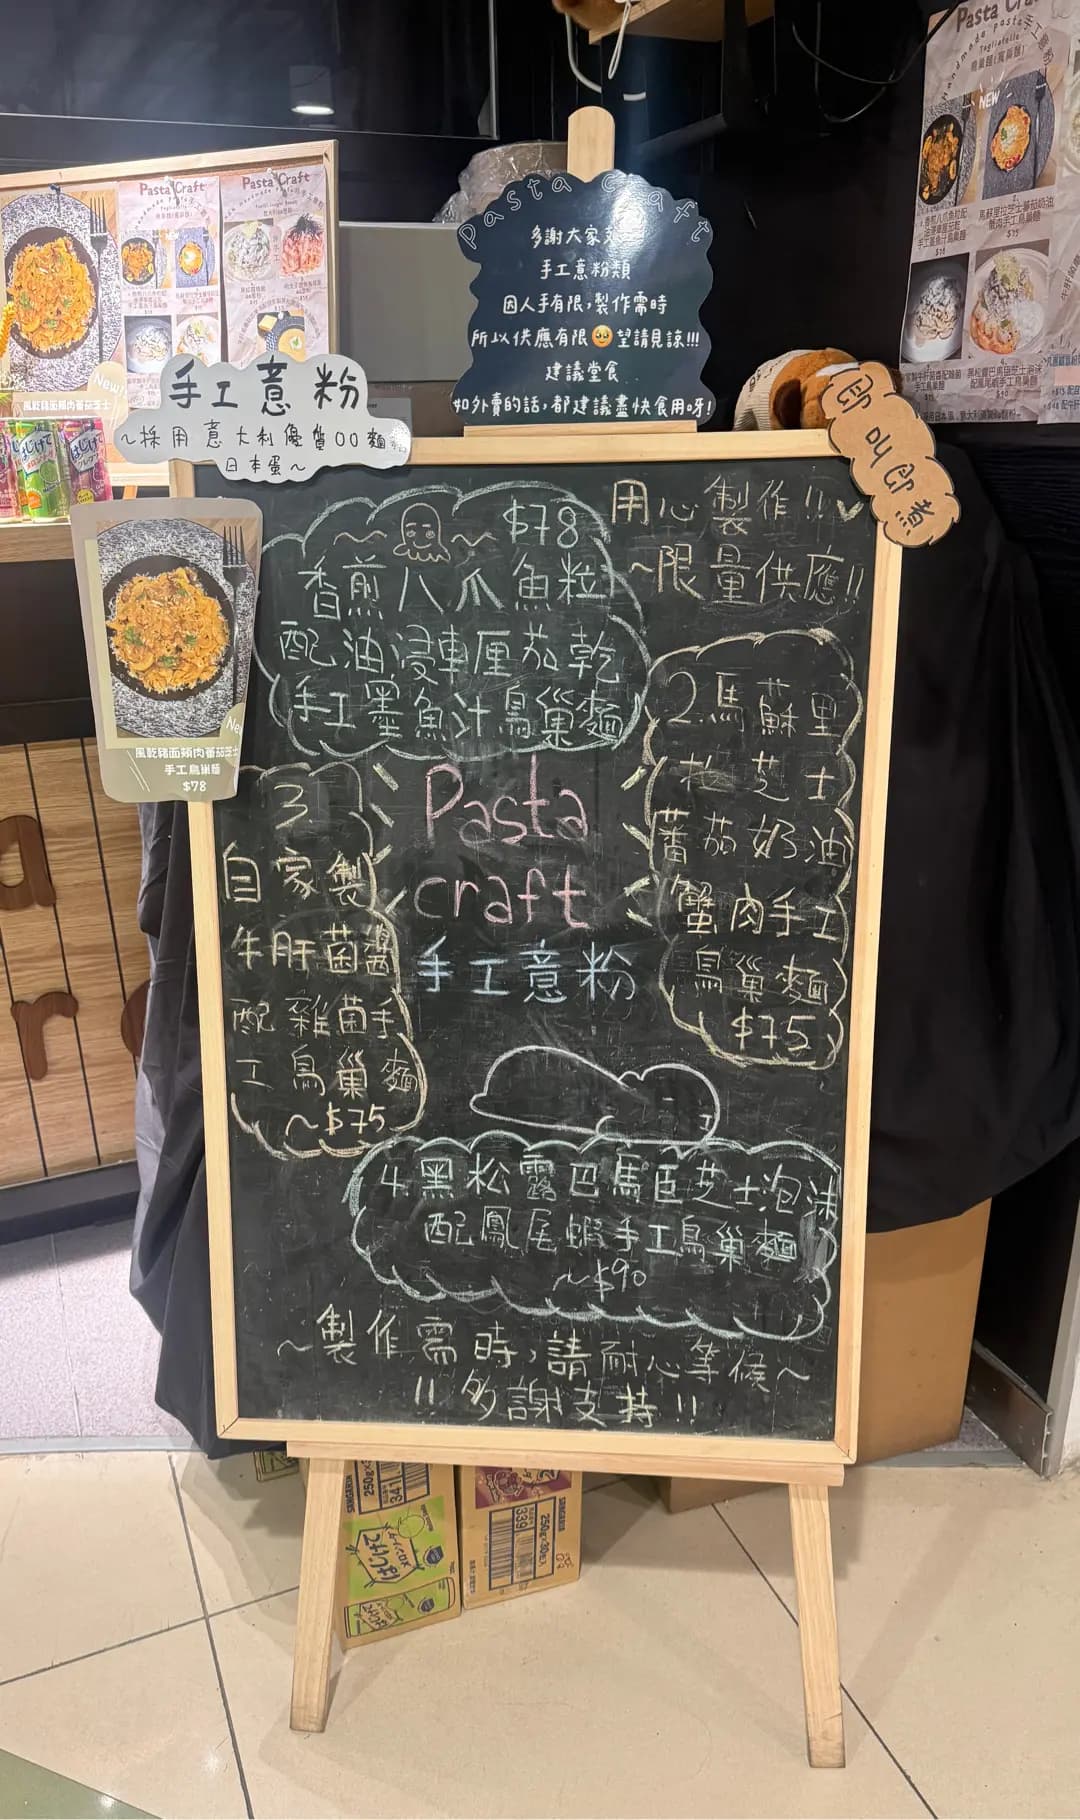 Pasta Craft
多謝大家
手工意粉類
因人手有限,製作需時
所以供應有限🥺望請見諒!!!
建議堂食
如外賣的話,都建議盡快食用呀!
Pasta Craft
Pasta Craft
Pasta Craft
NEW
New!
風乾豬面頰肉蕃茄芝士
手工意粉
~採用意大利優質00麵粉
日本蛋~
即叫即煮
風乾豬面頰肉蕃茄芝士
手工鳥巢麵
$78
New
$78
香煎八爪魚粒
配油浸車厘茄乾
手工墨魚汁鳥巢麵
用心製作!!
~限量供應!!
2.馬蘇里
拉芝士
蕃茄奶油
蟹肉手工
鳥巢麵
$75
3.
自家製
牛肝菌醬
配雜菌手
工鳥巢麵
~$75
Pasta
craft
手工意粉
4.黑松露巴馬臣芝士泡沫
配鳳尾蝦手工鳥巢麵
~$90
~製作需時,請耐心等候~
!!多謝支持!!
はじけて
SANGARIA
250g×30缶入
339
341